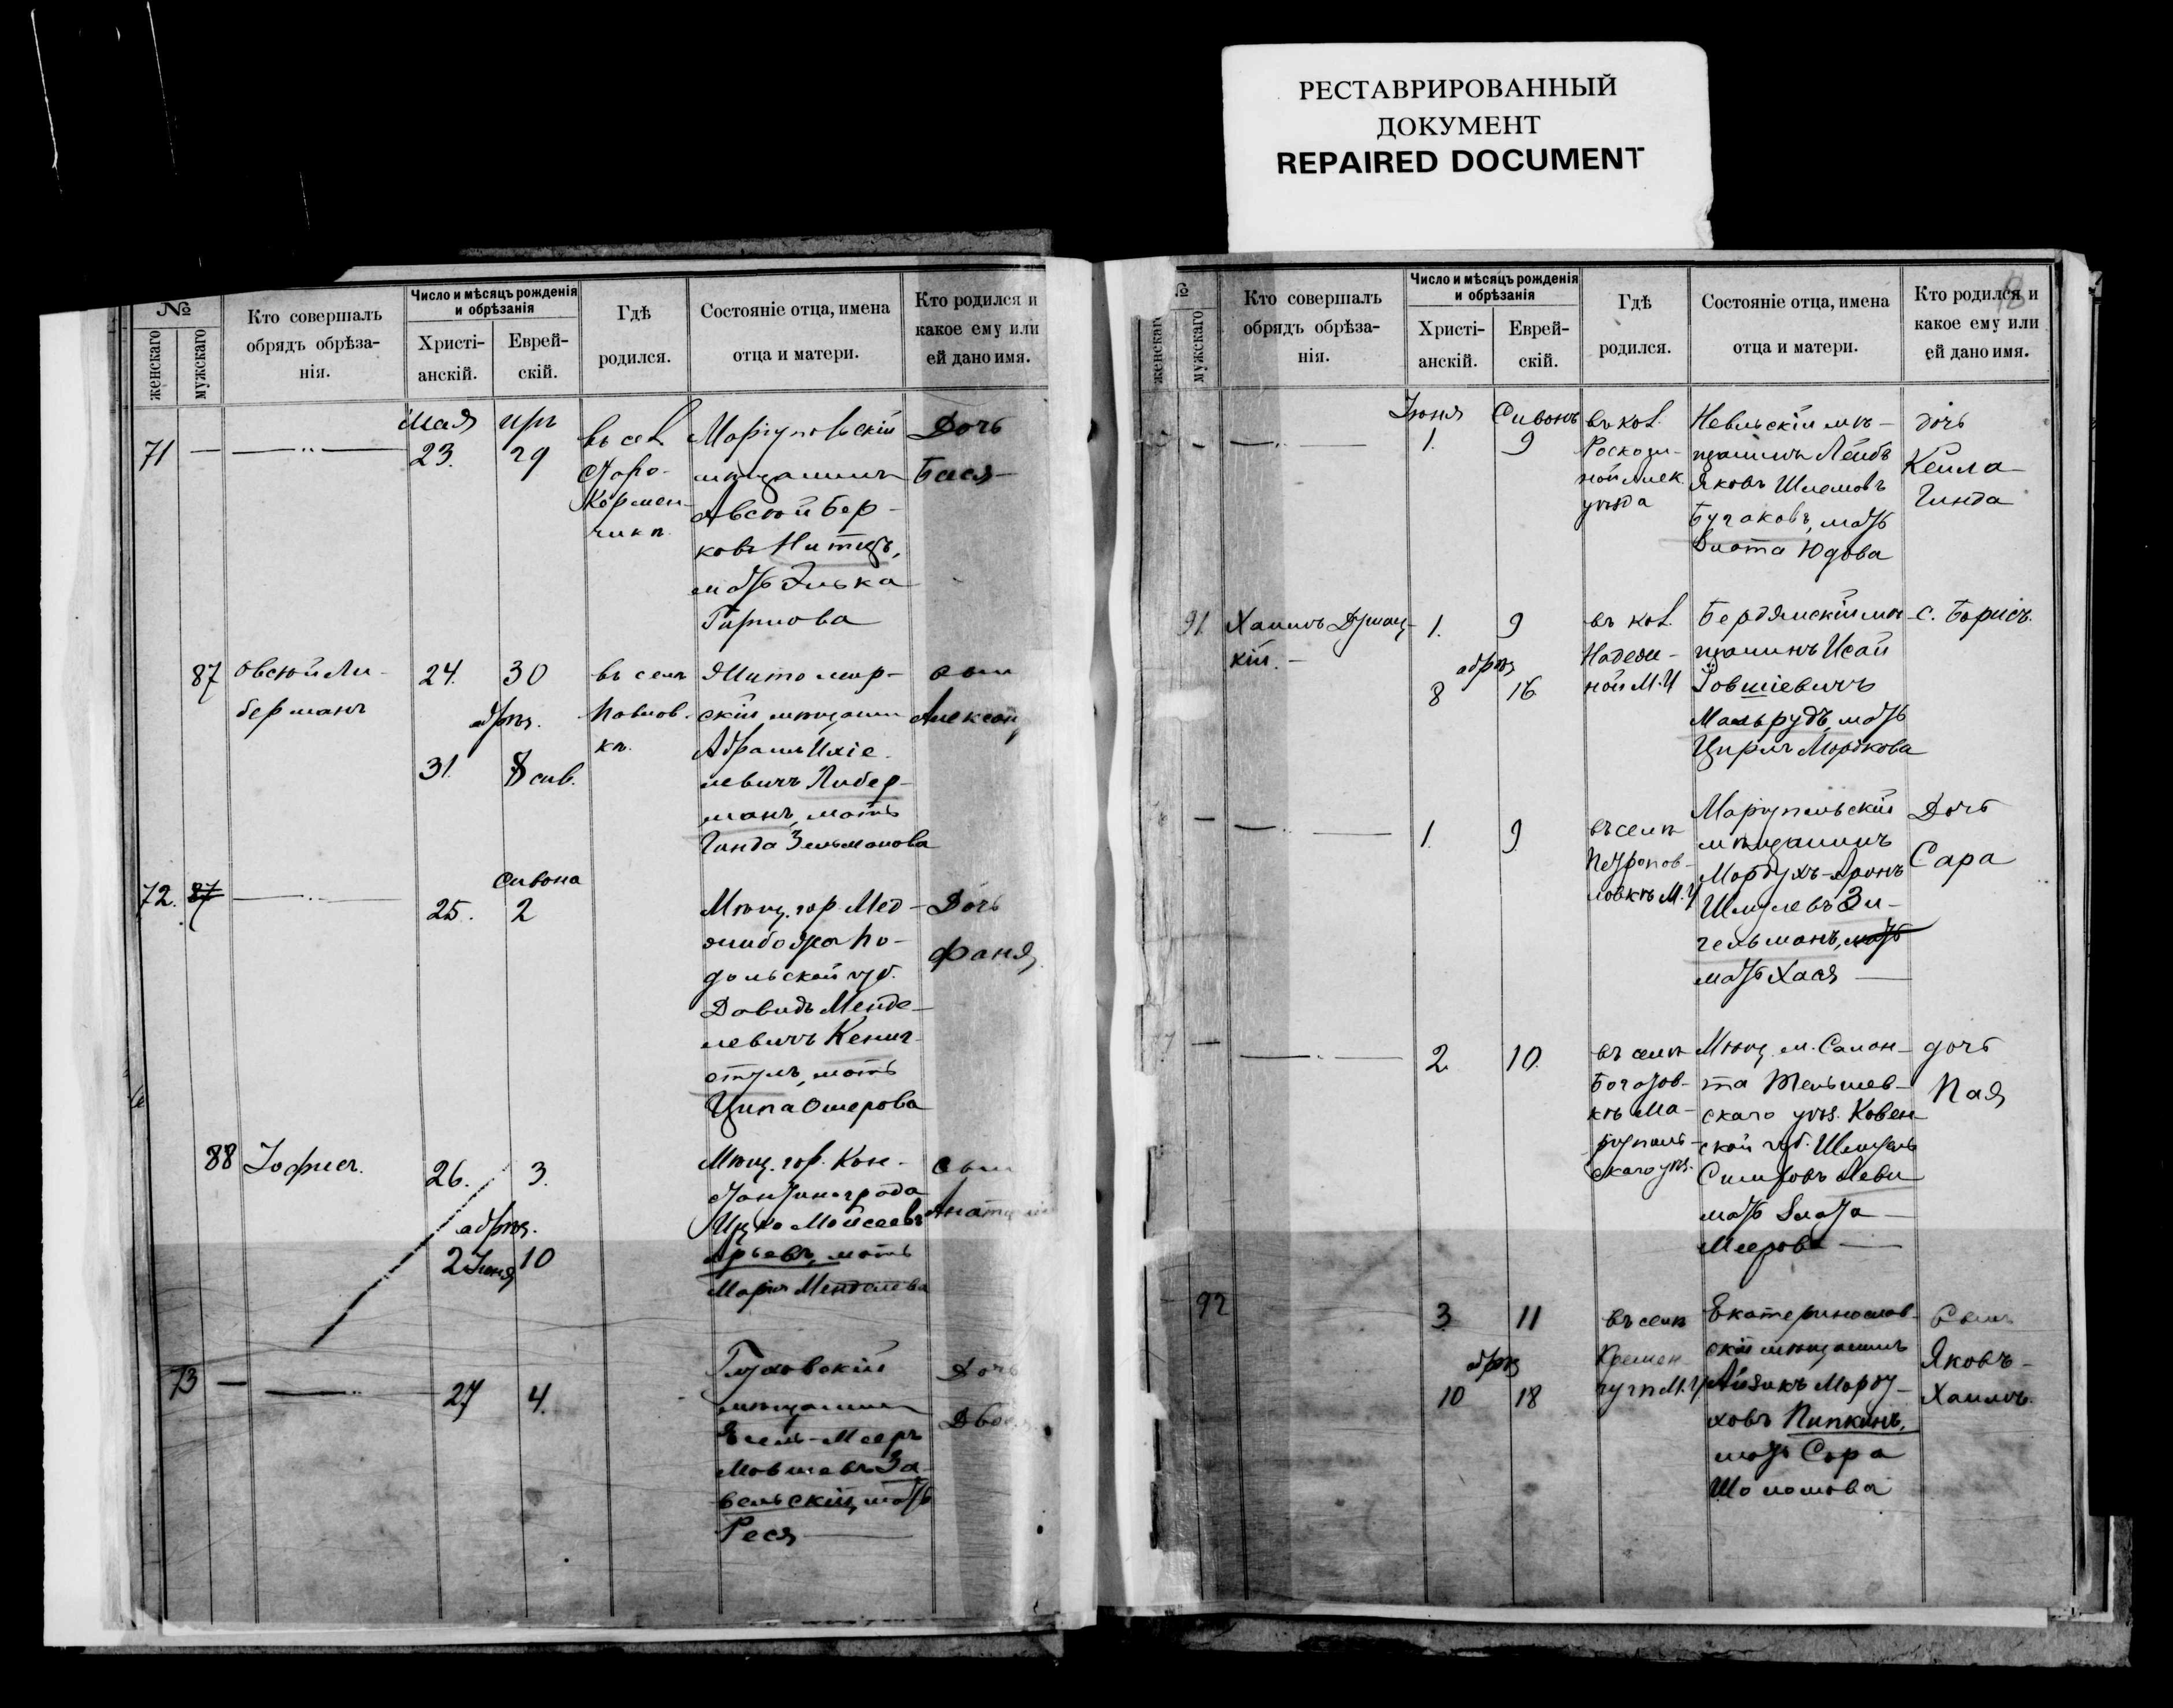 РЕСТАВРИРОВАННЫЙ
ДОКУМЕНТ
REPAIRED DOCUMENT
№
женскаго
мужскаго
Кто совершалъ
обрядъ обрѣза-
нія.
Число и мѣсяцъ рожденія
и обрѣзанія
Христі-
анскій.
Еврей-
скій.
Гдѣ
родился.
Состояніе отца, имена
отца и матери.
Кто родился и
какое ему или
ей дано имя.
71
мая
23.
29
въ сел
Старо-
Кормен-
чикѣ
Маріупольскій
мѣщанинъ
Овсей Бер-
ковъ
мать Элька
Дочь
Бася
87
Овсей Ли-
берманъ
24.
30
обрѣз.
31.
8 сив.
въ селѣ
Павлов-
кѣ.
Житомир-
скій мѣщанин
Абрамъ Ихіе-
левичъ Либер-
манъ, мать
Гинда Зельманова
сын
Александ
72.
87
Сивона
25.
2
Мѣщ. гор. Мед-
жибожа По-
дольской губ.
Давидъ Менде-
левичъ Кениг-
мать
Ципа Ошерова
Дочь
Фаня
88
Іофисъ.
26.
3.
обрѣз.
2 Іюня
10
Мѣщ. гор. Кон-
стантинограда
Ицко Мойсеевъ
Арьевъ, мать
Марія Менделева
сын
73
27
4.
Глуховскій
мѣщанин
Мовшевъ За-
вельскій, мать
Реся
Дочь
№
женскаго
мужскаго
Кто совершалъ
обрядъ обрѣза-
нія.
Число и мѣсяцъ рожденія
и обрѣзанія
Христі-
анскій.
Еврей-
скій.
Гдѣ
родился.
Состояніе отца, имена
отца и матери.
Кто родился и
какое ему или
ей дано имя.
Іюня
1.
Сивонъ
9
въ кол.
Роскош-
ной Алек.
уѣзда
Невльскій мѣ-
щанинъ Лейбъ
Яковъ Шлемовъ
Бугаковъ, мать
Злота Юдова
дочь
Кейла
Гинда
91.
Хаимъ
кій.
1.
9
обрѣз
8
16
въ кол.
Надеж-
ной М.У
Бердянскій мѣ
щанинъ Исай
Іовшіевичъ
Мальрудъ, мать
Циря Мордкова
с. Борисъ.
1.
9
въ селѣ
Петропав-
ловкѣ М.У
Маріупольскій
мѣщанинъ
Мордухъ-Аронъ
Шмулевъ Эн-
гельманъ, мать
мать Хася
Дочь
Сара
2
10.
въ селѣ
Богатов-
кѣ Ма-
ріуполь-
скаго уѣз.
Мѣщ. м. Салан-
та Тельшев-
скаго уѣз. Ковен-
ской губ. Шмуель
Леви
мать Злата
Меерова
дочь
Пая
92
3
11
обрѣз
10
18
въ селѣ
Кремен-
Екатеринослав-
скій мѣщанинъ
Айзикъ Морду-
ховъ Пипкинъ,
мать Сора
Шоломова
Сынъ
Яковъ-
Хаимъ.